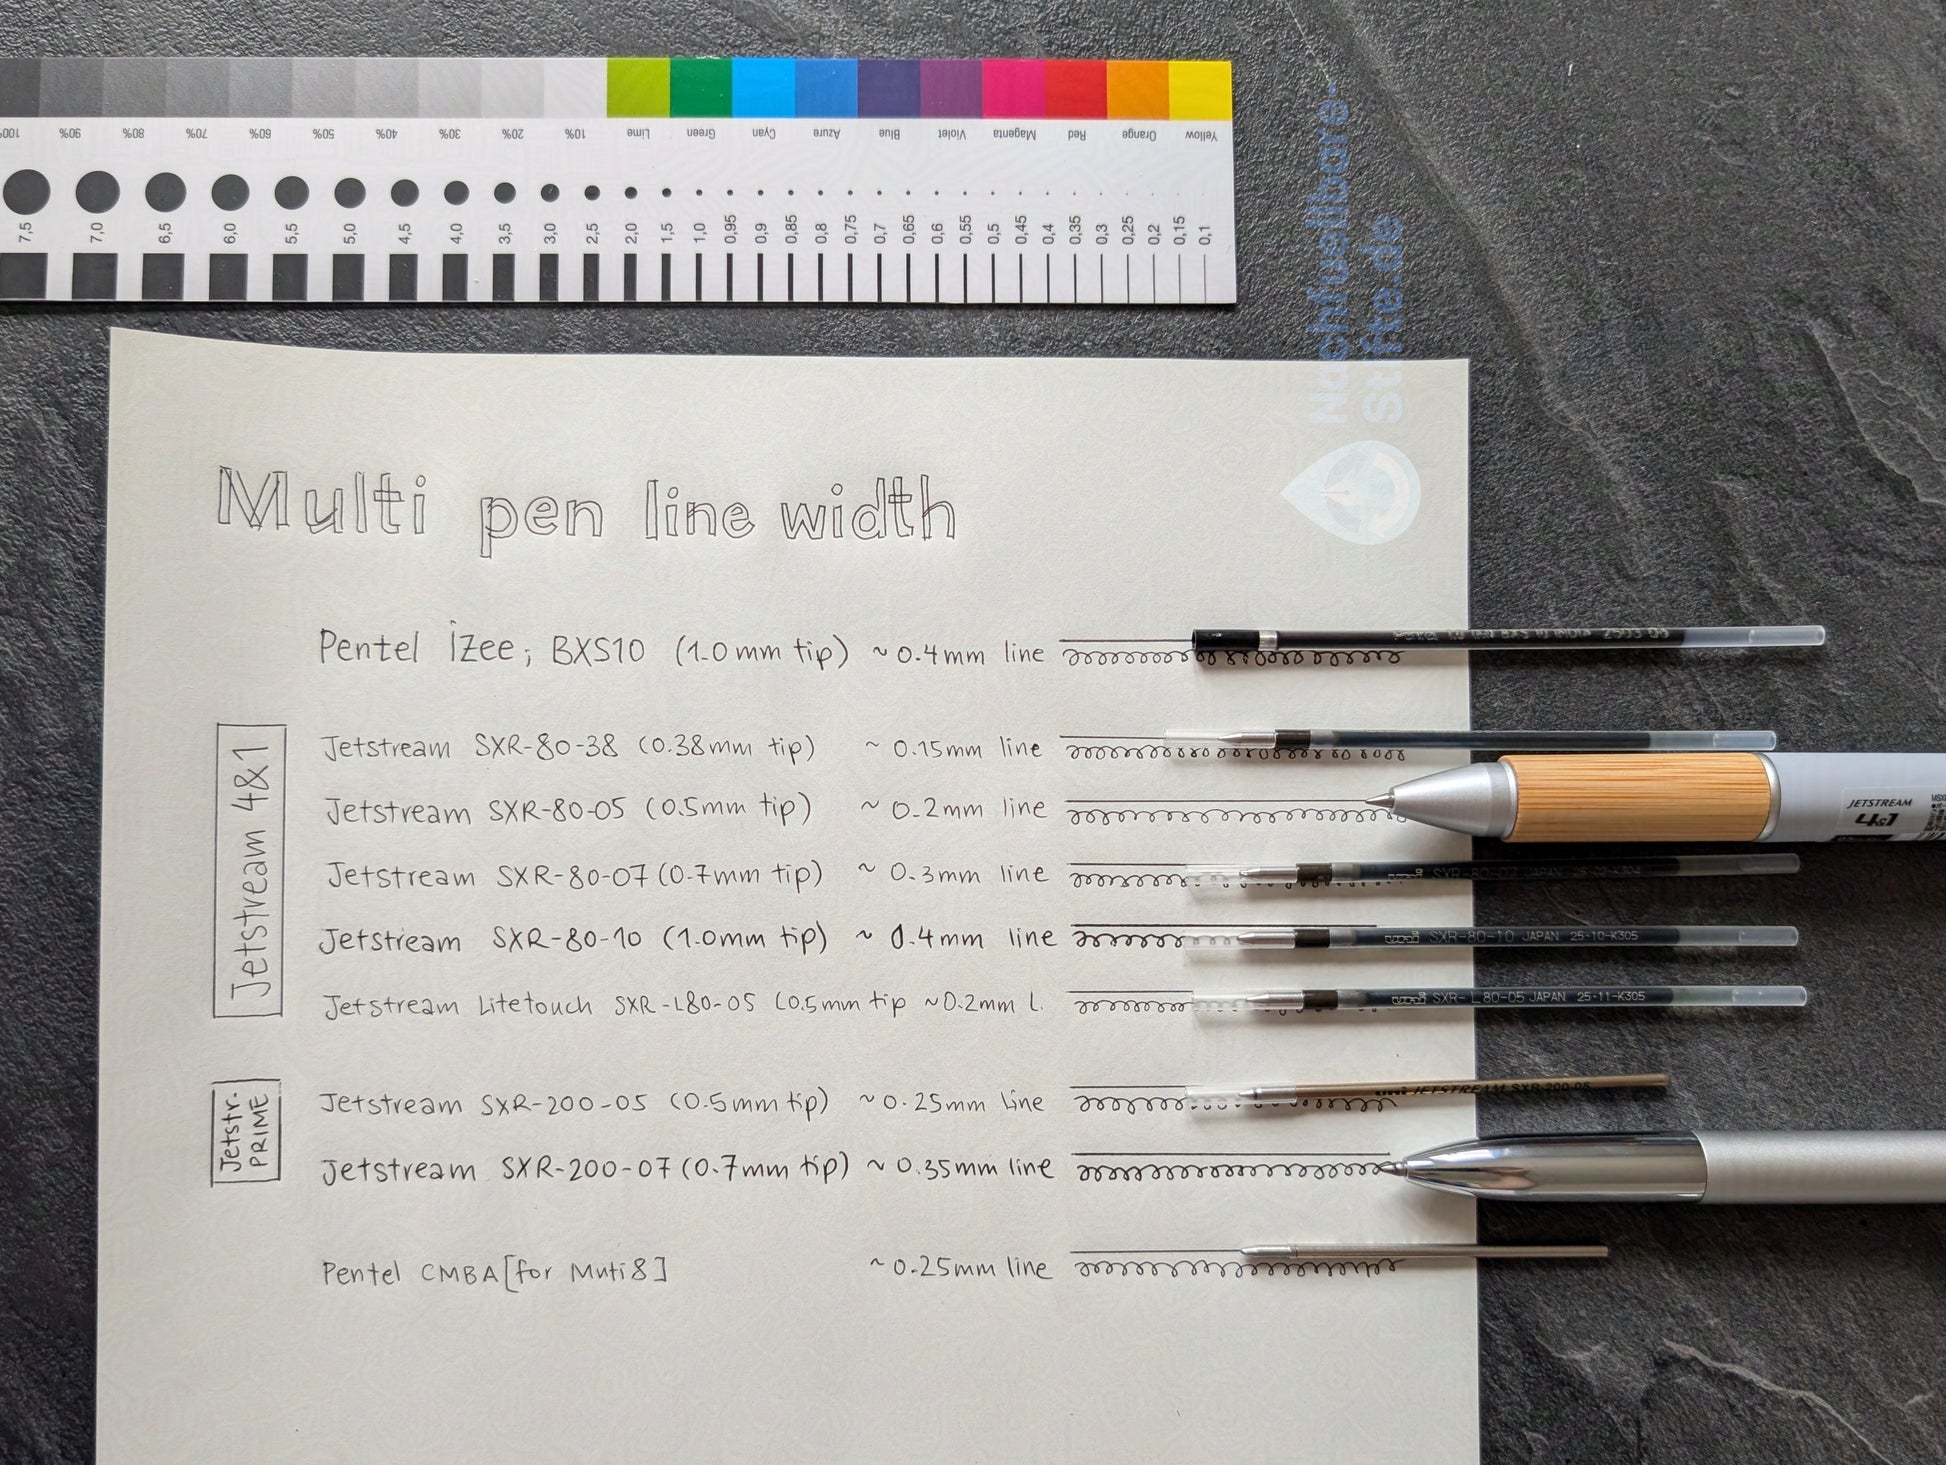 100% 90% 80% 70% 60% 50% 40% 30% 20% 10% Lime Green Cyan Azure Blue Violet Magenta Red Orange Yellow
7,5 7,0 6,5 6,0 5,5 5,0 4,5 4,0 3,5 3,0 2,5 2,0 1,5 1,0 0,95 0,9 0,85 0,8 0,75 0,7 0,65 0,6 0,55 0,5 0,45 0,4 0,35 0,3 0,25 0,2 0,15 0,1
Nachfuellbare-
Stifte.de
Multi pen line width
Pentel iZee; BXS10 (1.0mm tip) ~0.4mm line
Jetstream 4&1
Jetstream SXR-80-38 (0.38mm tip) ~0.15mm line
Jetstream SXR-80-05 (0.5mm tip) ~0.2mm line
JETSTREAM
4&1
Jetstream SXR-80-07 (0.7mm tip) ~0.3mm line
SXR-80-07 JAPAN
Jetstream SXR-80-10 (1.0mm tip) ~0.4mm line
uni SXR-80-10 JAPAN 25-10-K305
Jetstream Litetouch SXR-L80-05 (0.5mm tip ~0.2mm l.
uni SXR-L80-05 JAPAN 25-11-K305
Jetstr.
PRIME
Jetstream SXR-200-05 (0.5mm tip) ~0.25mm line
uni JETSTREAM SXR-200-05
Jetstream SXR-200-07 (0.7mm tip) ~0.35mm line
Pentel CMBA [for Muti8] ~0.25mm line